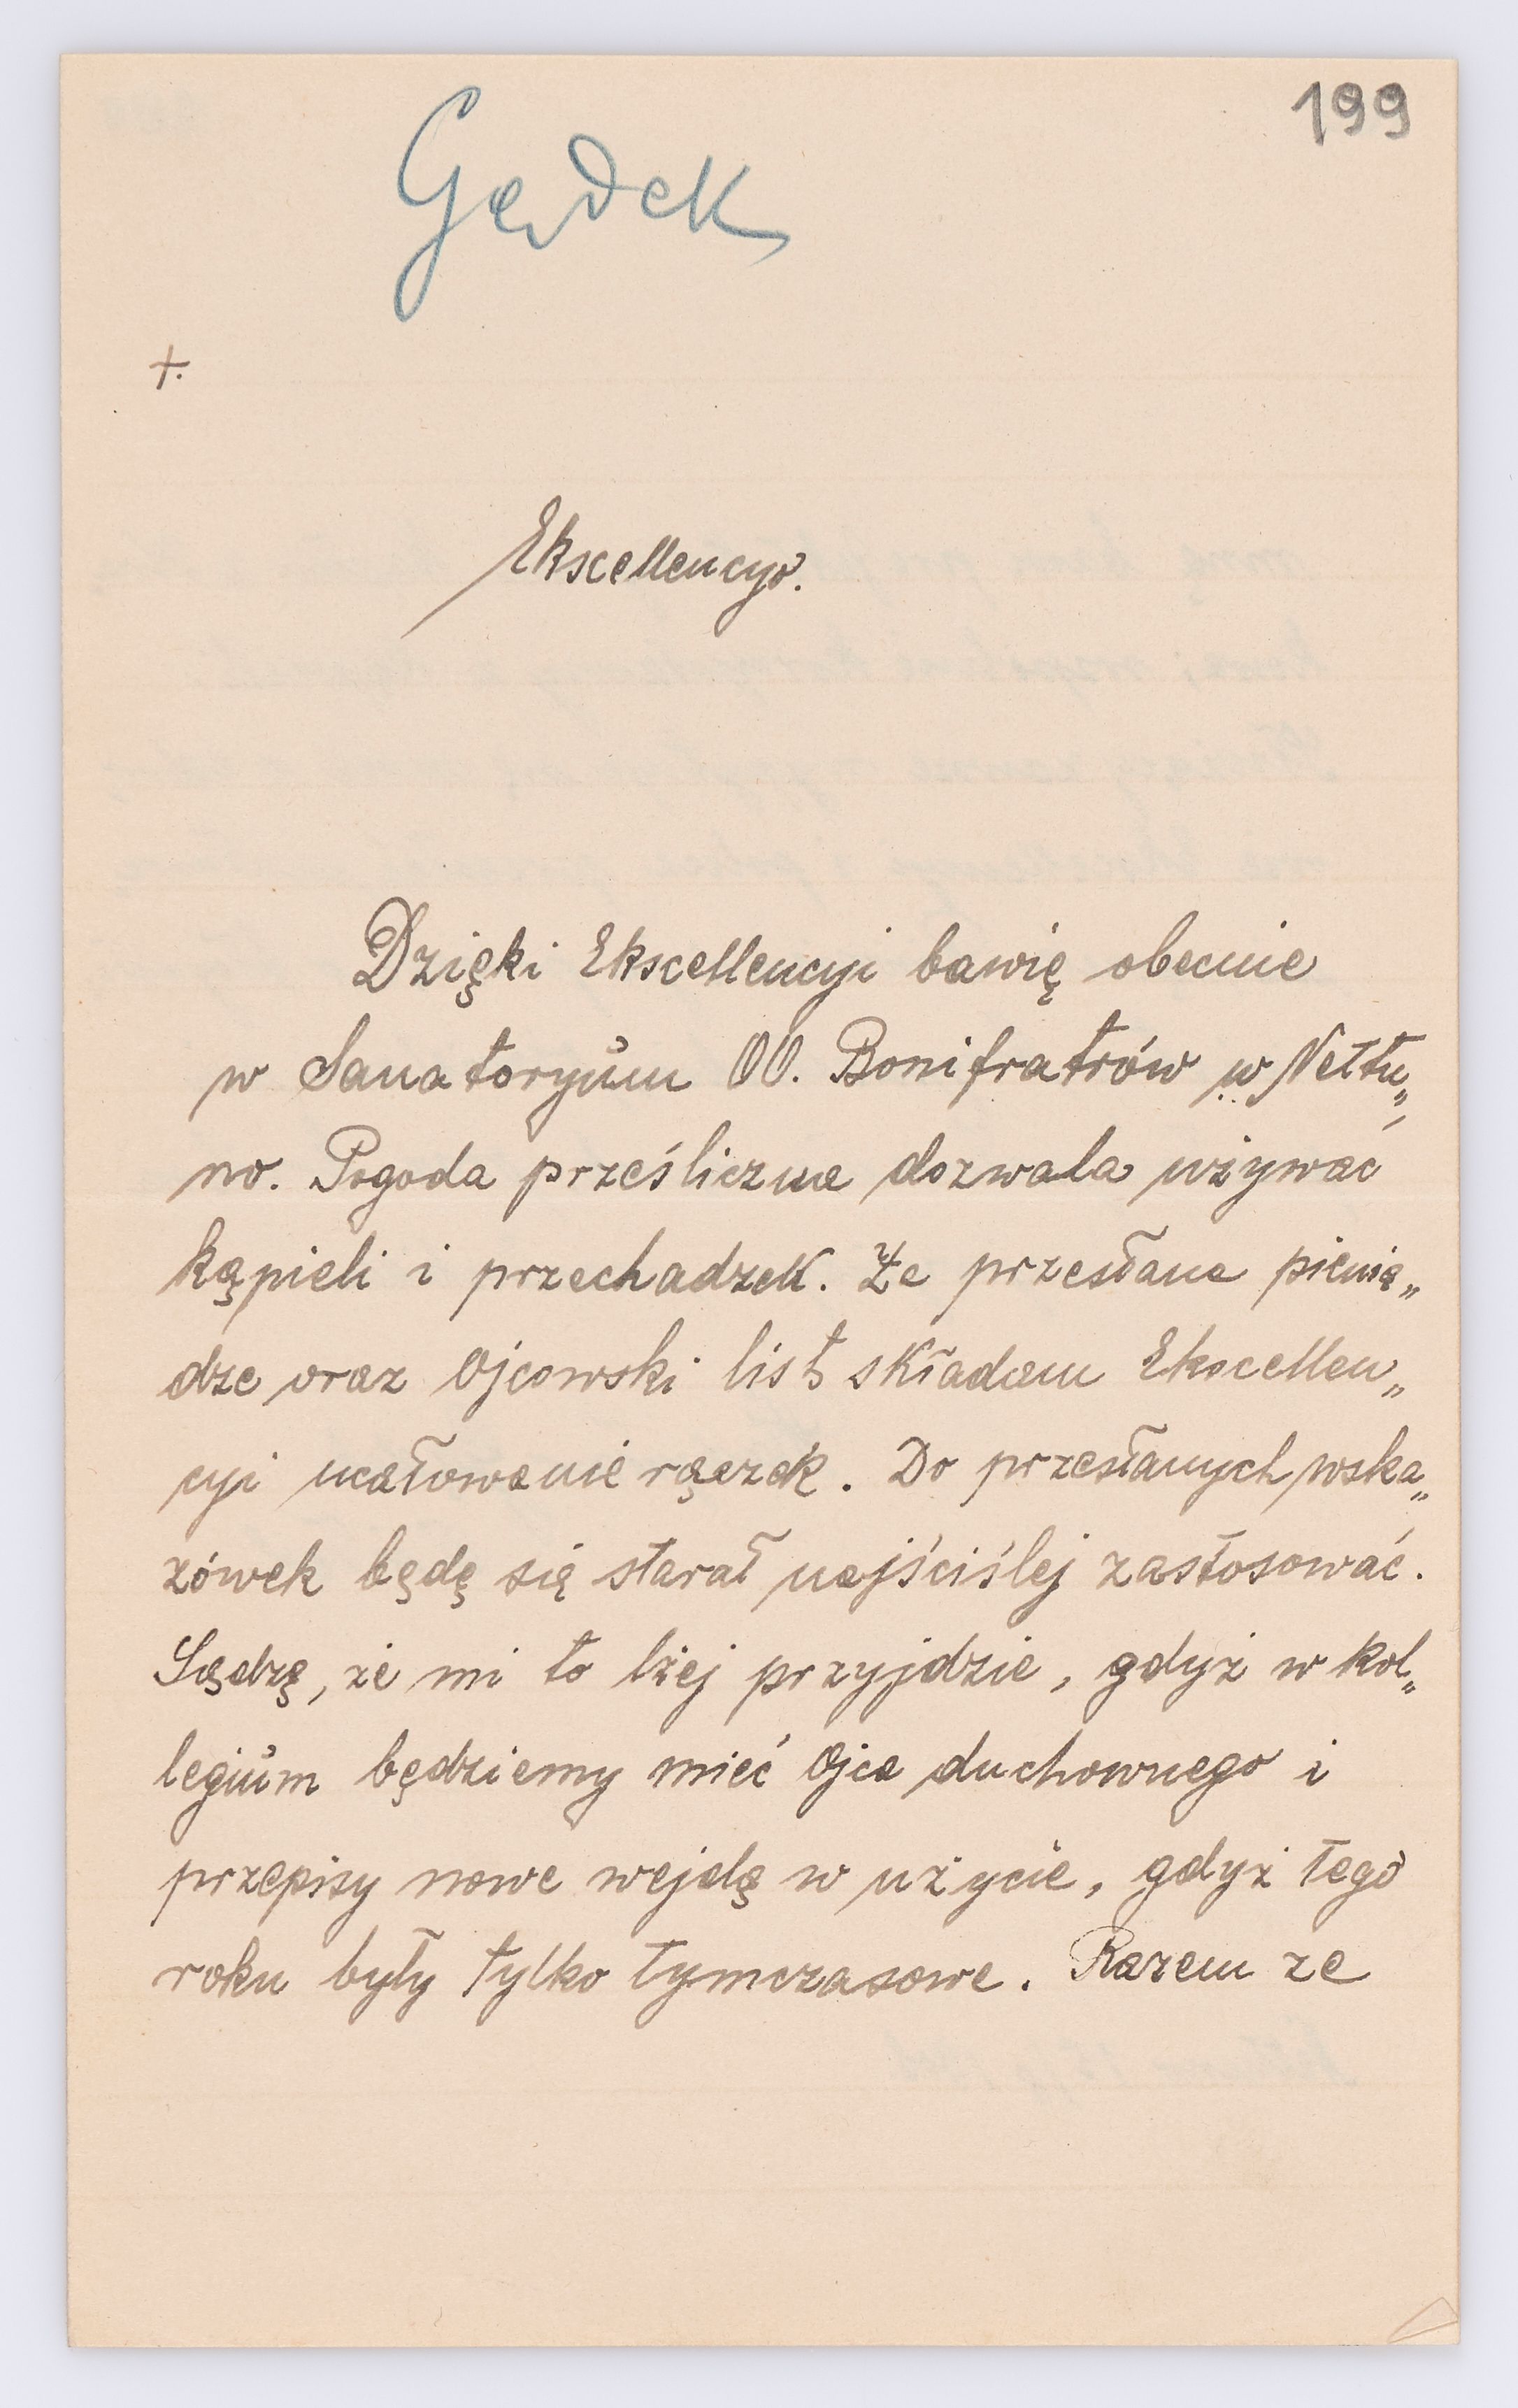 199
Gądek
+.
Ekscellencyo.
Dzięki Ekscellencyi bawię obecnie
w Sanatoryum OO. Bonifratrów w Nettu„
no. Pogoda prześliczna dozwala używać
kąpieli i przechadzek. Za przesłane pienią„
dze oraz Ojcowski list składam Ekscellen„
cyi ucałowanie rączek. Do przesłanych wska„
zówek będę się starał najściślej zastosować.
Sądzę, że mi to lżej przyjdzie, gdyż w kol„
legium będziemy mieć Ojca duchownego i
przepisy nowe wejdą w użycie, gdyż tego
roku były tylko tymczasowe. Razem ze